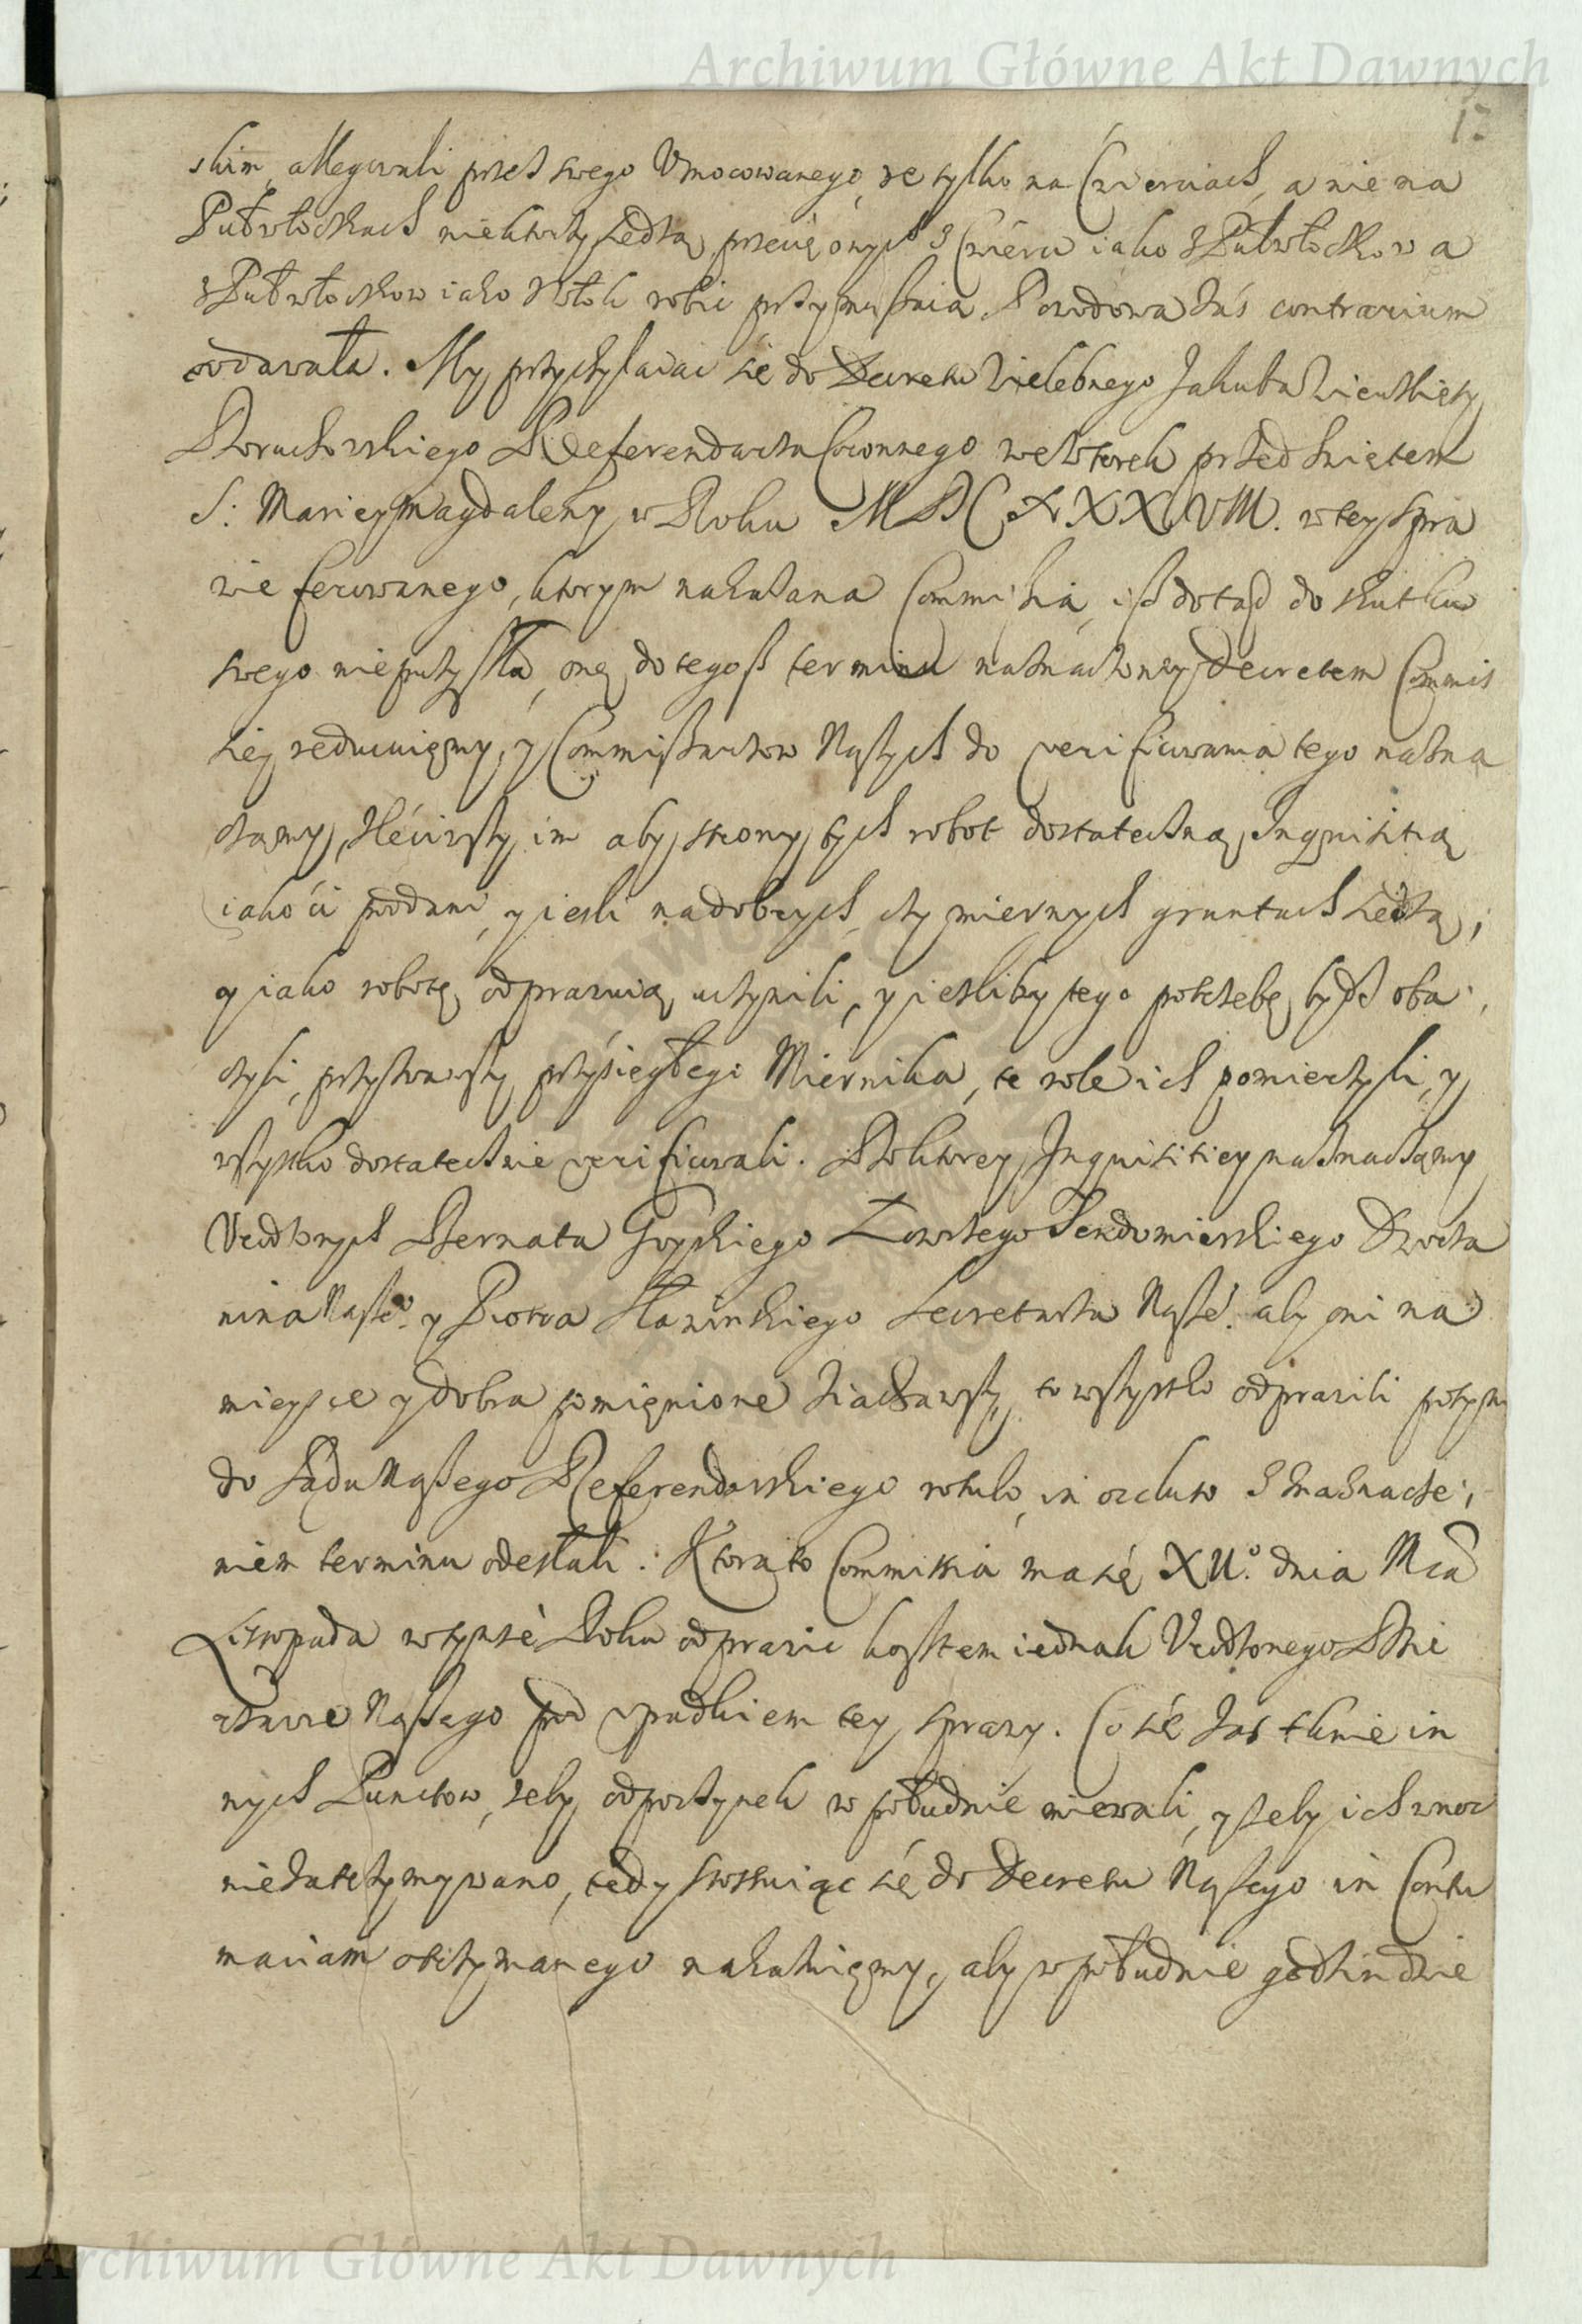 Archiwum Główne Akt Dawnych
17
skim, allegowali przez swego Umocowanego, ze tylko na Czwierciach, a nie na
Pułwłockach niektorzy siedzą, przecię onych z Czwierci iako z Pułwłockow a
z Pułwłockow iako z Włok robic przymuszaia. Powodowa zaś contrarium
wdawała. My przychylaiac się do Decretu Wielebnego Jakuba Wierzbięty
Doruchowskiego Referendarza Coronnego we wtorek przed Swiętem
S: Mariey Magdaleny w Roku MDCXXXVIII. w tey spra
wie ferowanego, ktorym nakazana Commissia, isz dotąd do skutku
swego nie przyszła, onę do tegosz terminu naznaczoney Decretem Commis
siey reducuięmy, y Commissarzow Naszych do verificowania tego nazna
czamy, zléciwszy im aby strony tych robot dostateczną Inquisitią
iako ci poddani, y iesli na dobrych, czy miernych gruntach siedzą,
y iako robotę odprawuią uczynili, y iesliby tego potrzebę bydź oba
czyli, przyzwawszy przysięgłego Miernika, te role ich pomierzyli, y
wszystko dostatecznie verificowali. Do ktorey Inquisitiey naznaczamy
Urodzonych Bernata Goyskiego Łowczego Sendomierskiego Dworza
nina Nasze°. y Piotra Sławinskiego Secretarza Nasze°. aby oni na
mieysce y dobra pomięnione ziachawszy, to wszystko odprawili potym
do Sądu Naszego Referendarskiego rotulo in occluso z znaznacze
niem terminu odesłali. Ktora to Commissia ma się XII.° dnia Mca
Listopada w tymże Roku odprawic kosztem iednak Urodzonego Dzie
rzawce Naszego pod upadkiem tey sprawy. Co się zas tknie in
nych Punctow, zeby odpoczynek w południe miewali, y zeby ich w noc
nie zatrzymywano, tedy stosuiąc się do Decretu Naszego in Contu
maciam otrzymanego nakazuięmy, aby w południe godzin dwie
Archiwum Główne Akt Dawnych